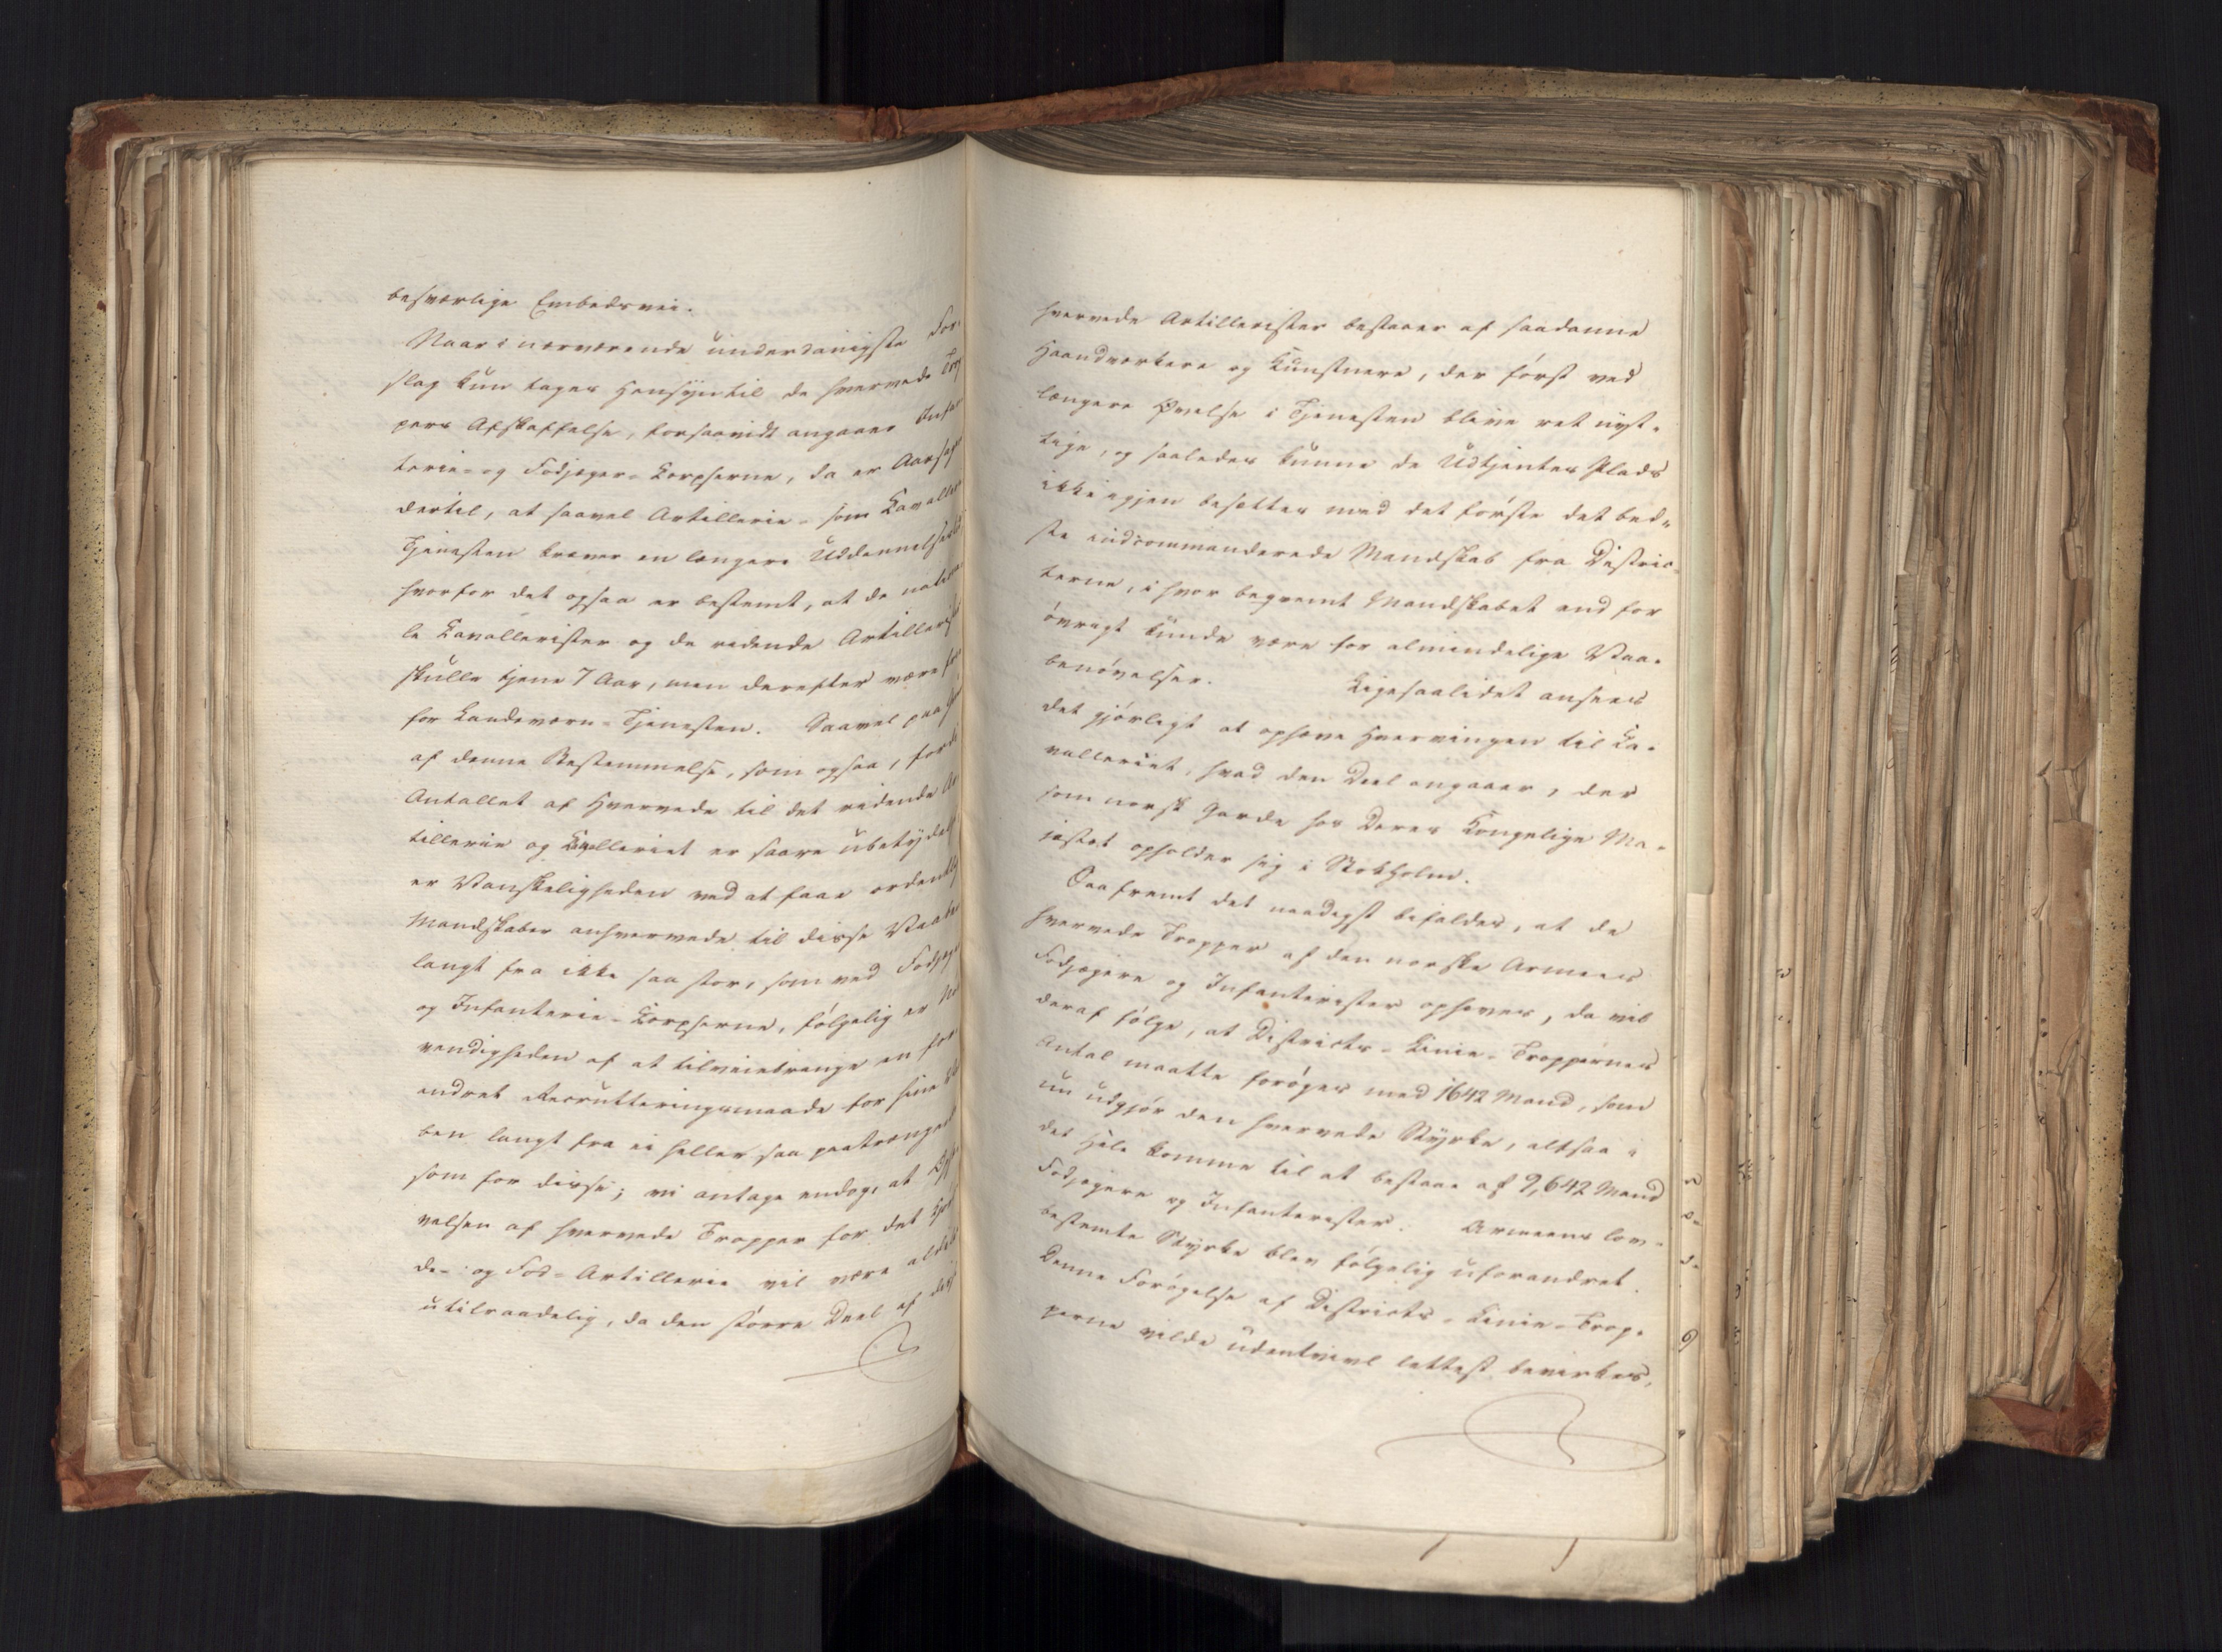 besværlige Embedsvei.
Naar i nærværende underdanigste For-
slag kun tages Hensyn til de hvervede Trop
pers Afskaffelse, forsaavidt angaaer Infan
terie- og Fodjæger-Korpserne, da er Aarsag
dertil, at saavel Artillerie- som Kavalleri
Tjenesten kræver en længere Uddannelses
hvorfor det ogsaa er bestemt, at de nationa
le Kavallerister og de ridende Artillerist
skulle tjene 7 Aar, men derefter være fri
for Landeværn-Tjenesten. Saavel paa Grund
af denne Bestemmelse, som ogsaa, fordi
Antallet af Hvervede til det ridende Ar
tillerie og Kavalleriet er saare ubetydelig
er Vanskeligheden ved at faae ordentlig
Mandskaber anhvervede til disse Vaaben
langt fra ikke saa stor, som ved Fodjæger
og Infanterie-Korpserne, følgelig er Nød
vendigheden af at tilveiebringe en for
andret Recrutteringsmaade for hine Vaa
ben langt fra ei heller saa paatrængende
som for disse; vi antage endog, at Ophæ
velsen af hvervede Tropper for det kjøren
de- og Fod-Artillerie vil være aldeles
utilraadelig, da den større Deel af disse
hvervede Artillerister bestaaer af saadanne
Haandværkere og Kunstnere, der først ved
længere Øvelse i Tjenesten blive ret nyt-
tige, og saaledes kunne de Udtjentes Plads
ikke igjen besættes med det første det bed-
ste indcommanderede Mandskab fra Distric-
terne, i hvor beqvemt Mandskabet end for
øvrigt kunde være for almindelige Vaa-
benøvelser. Ligesaalidet ansees
det gjørligt at ophæve Hvervingen til Ka-
valleriet, hvad den Deel angaaer, der
som norsk Garde hos Deres Kongelige Ma-
jestæt opholder sig i Stokholm.
Saafremt det naadigst befaldes, at de
hvervede Tropper af den norske Armees
Fodjægere og Infanterister ophæves, da vil
deraf følge, at Districts-Linie-Troppernes
Antal maatte forøges med 1642 Mand, som
nu udgjør den hvervede Styrke, altsaa i
det Hele komme til at bestaae af 9,642 Mand
Fodjægere og Infanterister. Armeens lov-
bestemte Styrke blev følgelig uforandret.
Denne Forøgelse af Districts-Linie-Trop-
perne vilde udentvivl lettest bevirkes,